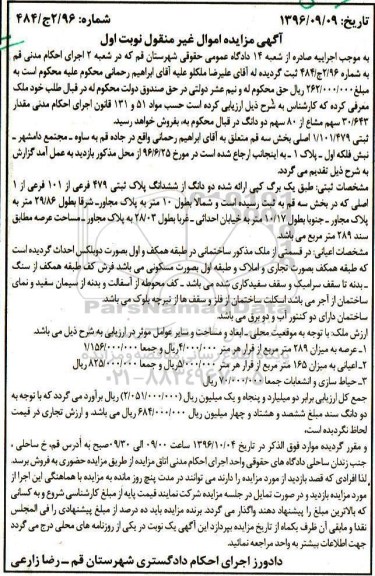 تاریخ: ۱۳۹۶/۰۹/۰۹ شماره: ۲/۹۶ج/۴۸۴
آگهی مزایده اموال غیر منقول نوبت اول
به موجب اجراییه صادره از شعبه ۱۴ دادگاه عمومی حقوقی شهرستان قم که در شعبه ۲ اجرای احکام مدنی قم
به شماره ۲/۹۶ج/۴۸۴ ثبت گردیده له آقای علیرضا ملکلو علیه آقای ابراهیم رحمانی محکوم علیه محکوم است به
مبلغ ۲۶۲/۰۰۰/۰۰۰ ریال حق محکوم له و نیم عشر دولتی در حق صندوق دولت محکوم له در قبال طلب خود ملک
معرفی کرده که کارشناس به شرح ذیل ارزیابی کرده است حسب مواد ۵۱ و ۱۳۱ قانون اجرای احکام مدنی مقدار
۳۰/۶۴۳ سهم مشاع از ۸۰ سهم دو دانگ در قبال محکوم به، بفروش خواهد رسید.
ثبتی ۱/۱۰۱/۴۷۹ اصلی بخش سه قم متعلق به آقای ابراهیم رحمانی واقع در جاده قم به ساوه ـ مجتمع دامشهر ـ
نبش فلکه اول ـ پلاک ۱ ـ به اینجانب ارجاع شده است در مورخ ۹۶/۶/۲۵ از محل مذکور بازدید به عمل آمد گزارش
به شرح ذیل تقدیم می گردد.
مشخصات ثبتی: طبق یک برگ کپی ارائه شده دو دانگ از ششدانگ پلاک ثبتی ۴۷۹ فرعی از ۱۰۱ فرعی از ۱
اصلی که در بخش سه قم به ثبت رسیده است و شمالا بطول ۱۰ متر به پلاک مجاور ـ شرقا بطول ۲۹/۸۶ متر به
پلاک مجاور ـ جنوبا بطول ۱۰/۱۷ متر به خیابان احداثی ـ غربا بطول ۲۸/۰۲ به پلاک مجاور ـ مساحت عرصه مطابق
سند ۲۸۹ متر مربع می باشد.
مشخصات اعیانی: در قسمتی از ملک مذکور ساختمانی در طبقه همکف و اول بصورت دوبلکس احداث گردیده است
که طبقه همکف بصورت تجاری و املاک و طبقه اول بصورت مسکونی می باشد فرش کف طبقه همکف از سنگ
ـ بدنه تا سقف سرامیک و سقف سفیدکاری شده می باشد ـ کف محوطه از آسفالت و بدنه از سیمان سفید و نمای
ساختمان از آجر می باشد اسکلت ساختمان از فلز و سقف ها از تیرچه بلوک می باشد.
ساختمان دارای دو کنتور آب و دو برق می باشد.
ارزش ملک: با توجه به موقعیت محلی ـ ابعاد و مساحت و سایر عوامل موثر در ارزیابی به شرح ذیل می باشد.
۱ـ عرصه به میزان ۲۸۹ متر مربع از قرار هر متر ۴/۰۰۰/۰۰۰ ریال و جمعا ۱/۱۵۶/۰۰۰/۰۰۰
۲ـ اعیانی به میزان ۱۶۵ متر مربع از قرار هر متر ۵/۰۰۰/۰۰۰ ریال و جمعا ۸۲۵/۰۰۰/۰۰۰ ریال
۳ـ حیاط سازی و انشعابات جمعا ۷۰/۰۰۰/۰۰۰ ریال
جمع کل ارزیابی برابر دو میلیارد و پنجاه و یک میلیون ریال (۲/۰۵۱/۰۰۰/۰۰۰) ریال برآورد می گردد که با توجه به
دو دانگ سند مبلغ ششصد و هشتاد و چهار میلیون ریال ۶۸۴/۰۰۰/۰۰۰ ریال می باشد. و ارزش تجاری در قیمت
لحاظ نگردیده است.
و مقرر گردیده موارد فوق الذکر در تاریخ ۱۳۹۶/۱۰/۰۴ ساعت ۰۹/۰۰ الی ۰۹/۳۰ صبح به آدرس قم، خ ساحلی ،
جنب زندان ساحلی دادگاه های حقوقی واحد اجرای احکام مدنی اتاق مزایده از طریق مزایده حضوری به فروش برسد.
لذا افرادی که قصد بازدید از مورد مزایده را دارند می توانند در مدت پنج روز مانده به مزایده با هماهنگی این اجرا از
مورد مزایده بازدید و در صورت تمایل در جلسه مزایده شرکت نمایند قیمت پایه از مبلغ کارشناسی شروع و به کسانی
که بالاترین مبلغ را پیشنهاد دهند واگذار می گردد. برنده مزایده باید ده درصد از مبلغ پیشنهادی را فی المجلس
نقدا و مابقی آن ظرف یکماه از تاریخ مزایده بپردازد این آگهی یک نوبت در یکی از روزنامه های محلی درج می گردد
جهت اطلاعات بیشتر به واحد مراجعه نمائید.
دادورز اجرای احکام دادگستری شهرستان قم ـ رضا زارعی